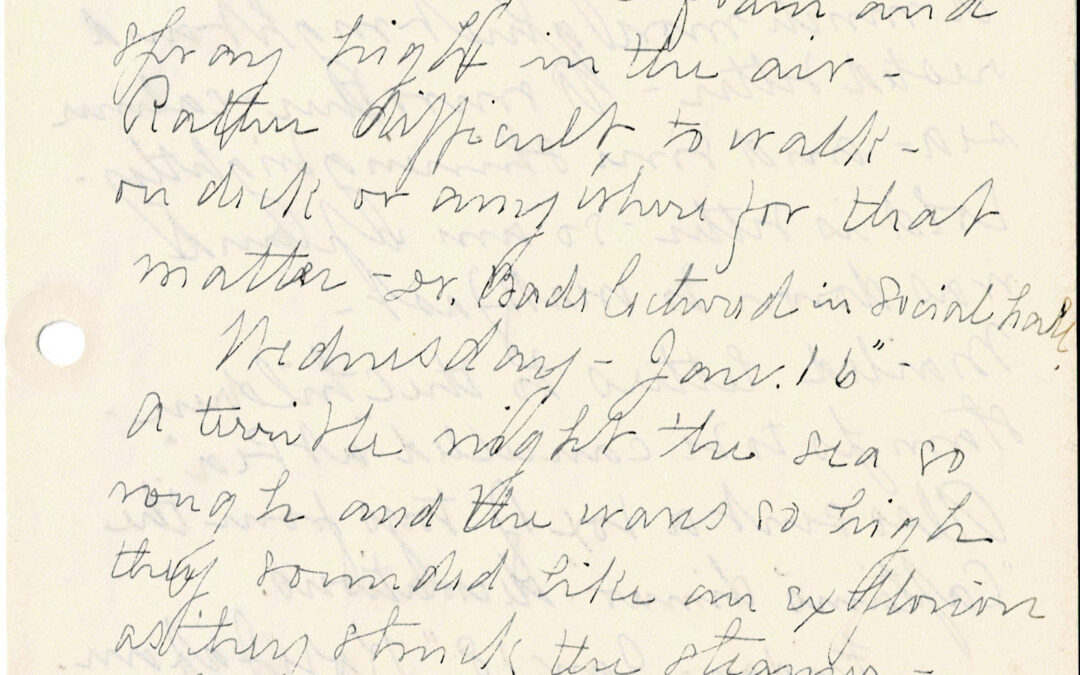 foam and
spray high in the air -
Rather difficult to walk -
on deck or anywhere for that
matter - Dr. Bade lectured in social hall.
Wednesday - Jan. 16" -
A terrible night the sea so
rough and the waves so high
they sounded like an explosion
as they struck the steamer -